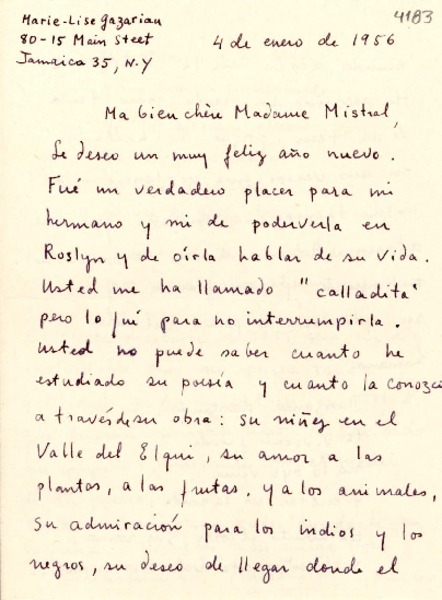 Marie-Lise Gazarian
80-15 Main Street
Jamaica 35, N.Y
4183
4 de enero de 1956
Ma bien chère Madame Mistral,
Le deseo un muy feliz año nuevo.
Fué un verdadero placer para mi
hermano y mi de poderverla en
Roslyn y de oírla hablar de su vida.
Usted me ha llamado "calladita"
pero lo fuí para no interrumpirla.
Usted no puede saber cuanto he
estudiado su poesía y cuanto la conozco
a través de su obra: su niñez en el
Valle del Elqui, su amor a las
plantas, a las frutas, y a los animales,
su admiración para los indios y los
negros, su deseo de llegar donde el